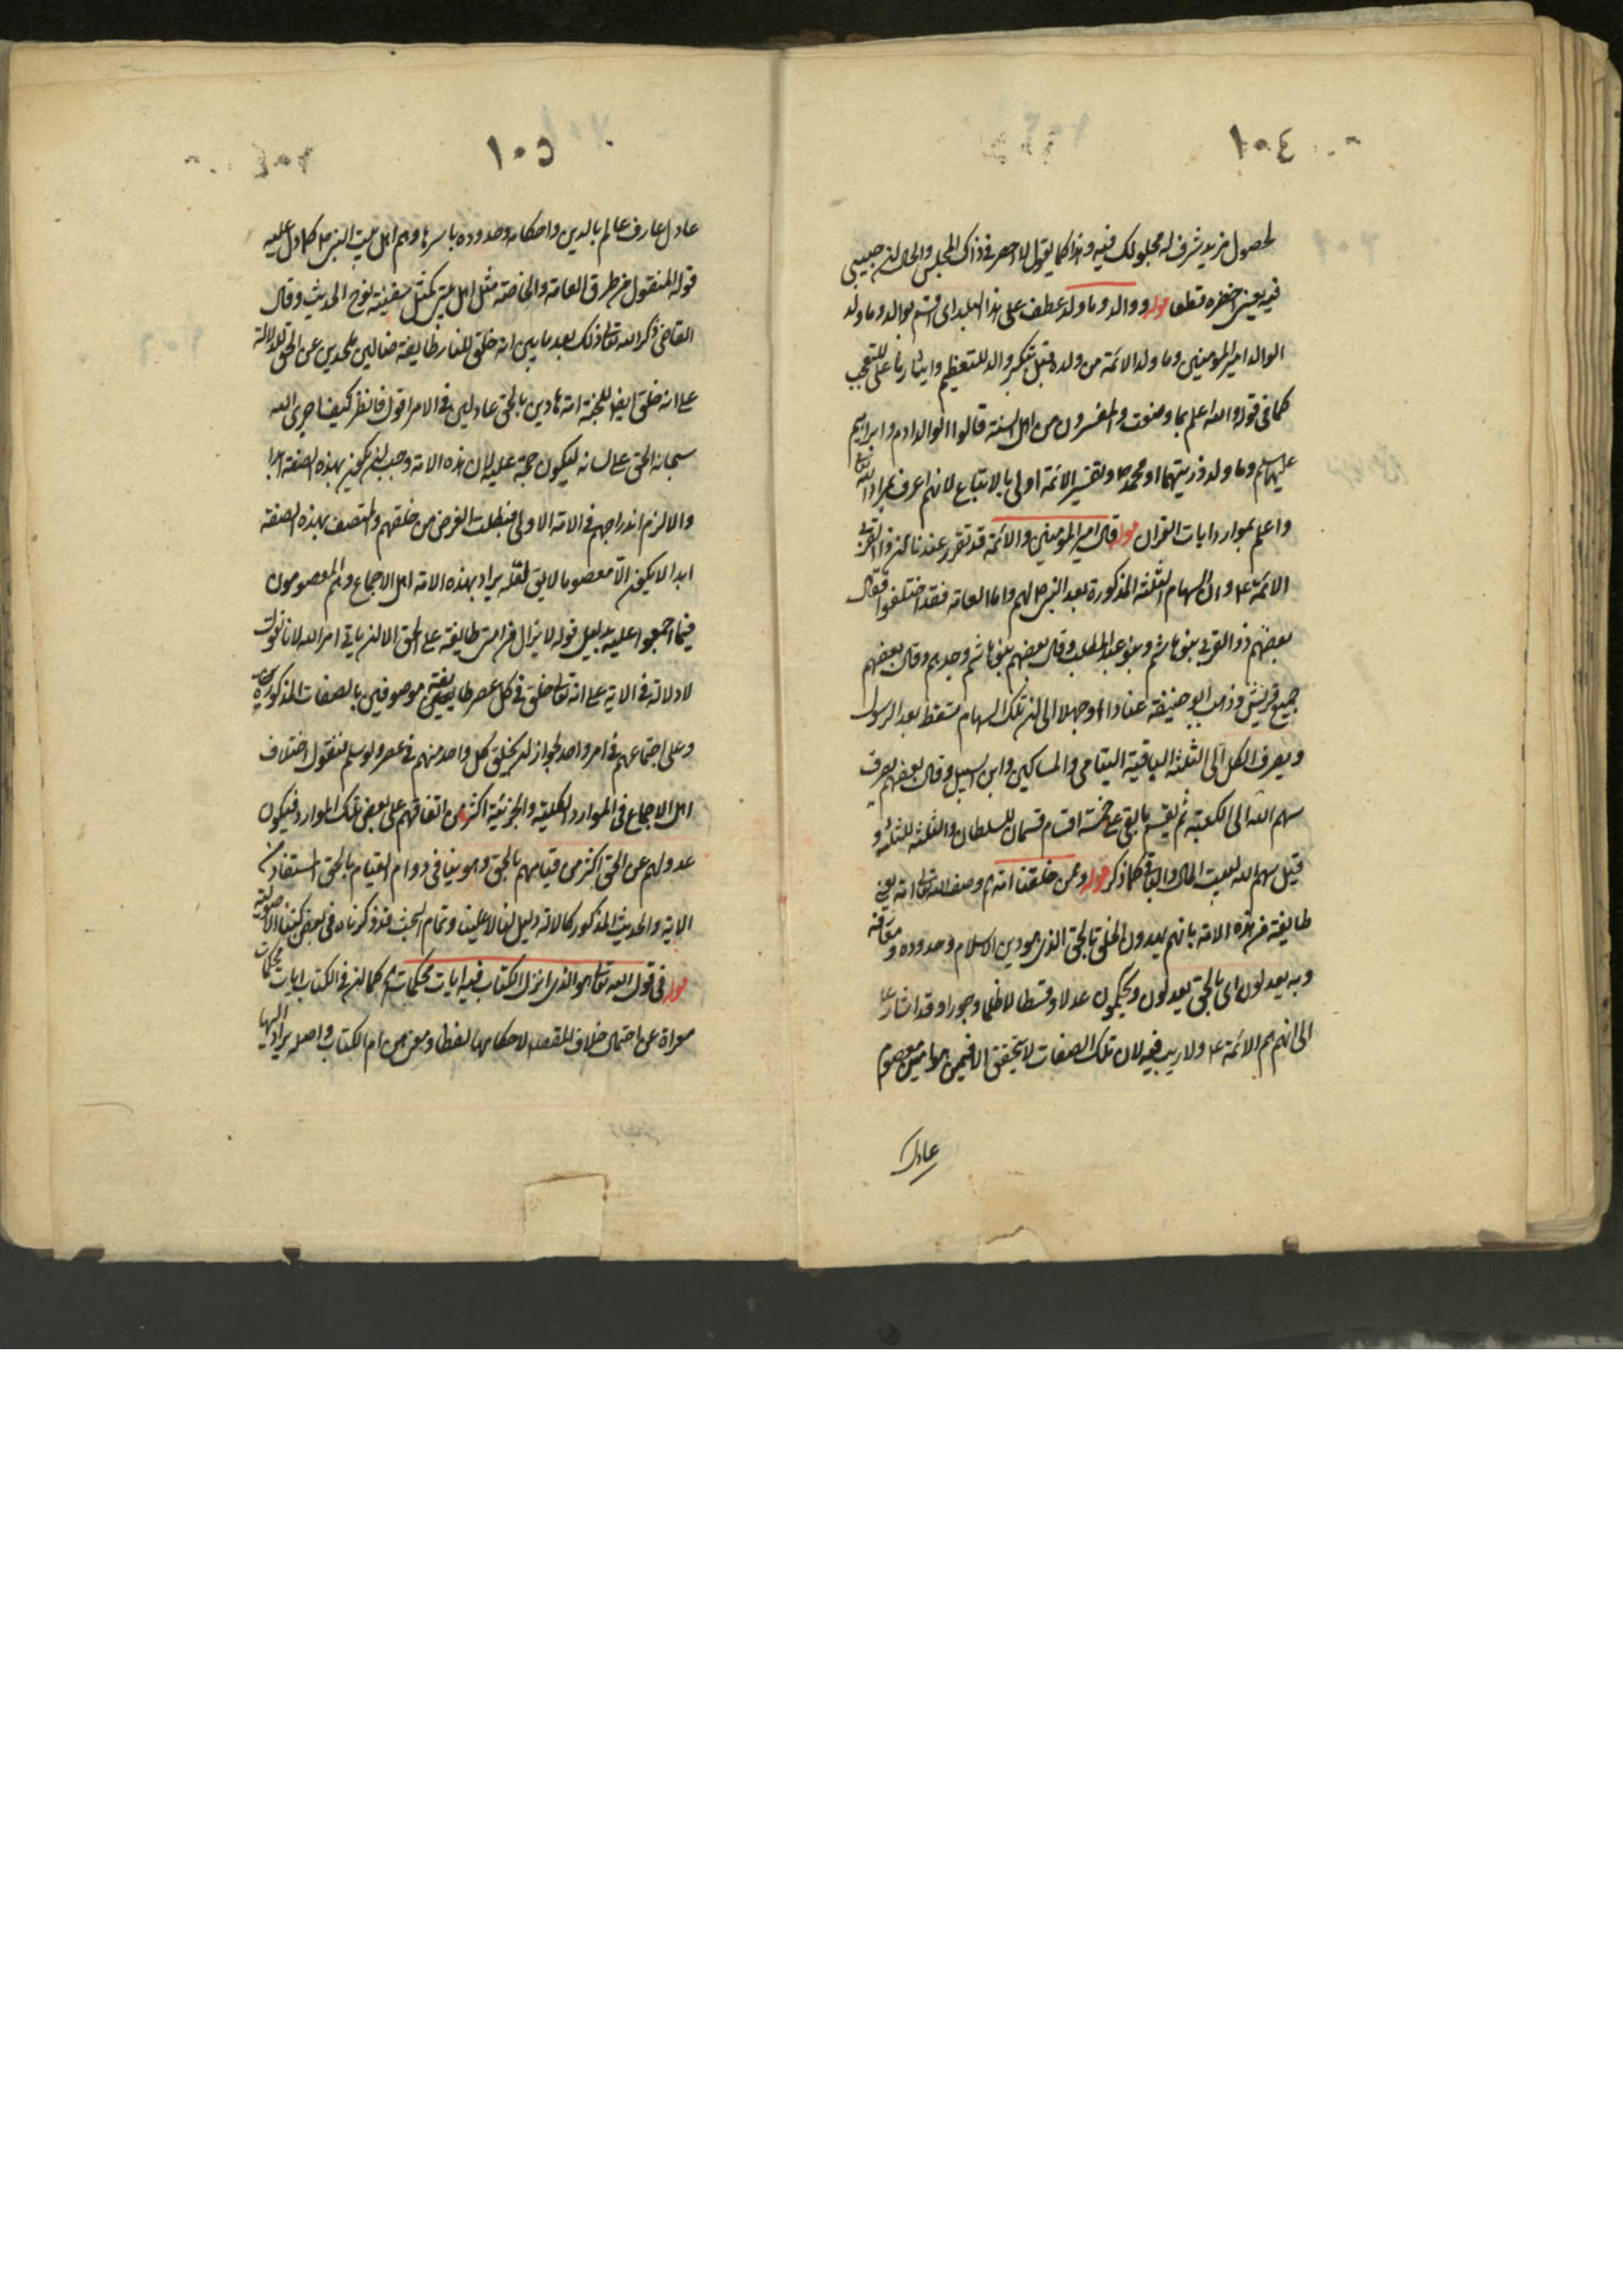 ١٠٤
لحصول مزيد شرف له بحلولك فيه وهذا كما يقول لا احصر في ذاك المجلس والحال ان حبيبي
فيه يعني احضره قطعا قوله ووالد وما ولد عطف على هذا البلد اى اقسم بوالد وما ولد
الوالد امير المؤمنين وما ولد الائمة من ولده قيل تنكير والد للتعظيم وايثار ما على للتعجب
كما في قوله والله اعلم بما وضعت والمفسرون من اهل السنة قالوا الوالد ادم وابراهيم
عليهما السلم وما ولد ذريتهما او محمد ص وتفسير الائمة اولى بالاتباع لانهم اعرف بمراد الله تعالى
واعلم بموارد ايات القران قوله قال امير المؤمنين والائمة قد تقرر عندنا ان ذا القربى
الائمة ع وان السهام الثلثة المذكورة بعد النبي ص لهم واما العامة فقد اختلفوا فقال
بعضهم ذو القربى بنو هاشم وبنو عبد المطلب وقال بعضهم بنو هاشم وحدهم وقال بعضهم
جميع قريش وذهب ابو حنيفة عنادا وجهلا الى ان تلك السهام تسقط بعد الرسول
ويصرف الكل الى الثلثة الباقية اليتامى والمساكين وابن السبيل وقال بعضهم يصرف
سهم الله الى الكعبة ثم يقسم ما بقى على خمسة اقسام قسمان للسلطان والثلثة للثلثة و
قيل سهم الله لبيت المال والباقي كما ذكر قوله وممن خلقنا امة وصف الله تعالى امة يعني
طايفة من هذه الامة بانهم يهدون الخلق بالحق الذي هو دين الاسلام وحدوده و
وبه يعدلون اى بالحق يعدلون ويحكمون عدلا وقسطا لا ظلما وجورا وقد اشار ع
الى انهم هم الائمة ع ولا ريب فيه لان تلك الصفات لا يتحقق الا فيمن هو معصوم
عادل
١٠٥
عادل عارف عالم بالدين واحكامه وحدوده باسرها وهم اهل بيت النبي ص كما دل عليه
قوله المنقول من طرق العامة والخاصة مثل اهل بيتي كمثل سفينة نوح الحديث وقال
القاضي ذكر الله تعالى ذلك بعد ما بين انه خلق للنار طايفة ضالين ملحدين عن الحق للدلالة
على انه خلق ايضا للجنة امة هادين بالحق عادلين في الامر اقول فانظر كيف اجرى الله
سبحانه الحق على لسانه ليكون حجة عليه لان هذه الامة وجب ان يكون بهذه الصفة ابدا
والا لزم اندراجهم في الامة الاولى فبطلت الغرض من خلقهم والمتصف بهذه الصفة
ابدا لا يكون الا معصوما لا يق لعله يراد بهذه الامة اهل الاجماع وهم المعصومون
فيما اجمعوا عليه بدليل قوله لا يزال من امتي طايفة على الحق الا ان ياتي امر الله لانا نقول
لا دلالة في الاية على انه تعالى خلق في كل عصر طايفة موصوفين بالصفات المذكورة
وعلى اجتماعهم في امر واحد لجواز ان يخلق كل واحد منهم في عصر ولو سلم فنقول اختلاف
اهل الاجماع في الموارد الكلية والجزئية اكثر من اتفاقهم على بعض تلك الموارد فيكون
عدولهم عن الحق اكثر من قيامهم بالحق وهو ينافي دوام القيام بالحق المستفاد من
الاية والحديث المذكور كالاية دليل لنا لا علينا وتمام البحث قد ذكرناه في بعض كتبنا الاصولية
قوله في قول الله تعالى هو الذي انزل الكتاب فيه ايات محكمات كما ان في الكتاب ايات محكمات
معراة عن احتمال خلاف المقصود لاحكامها لفظا ومعنى هن ام الكتاب واصله يراد اليها